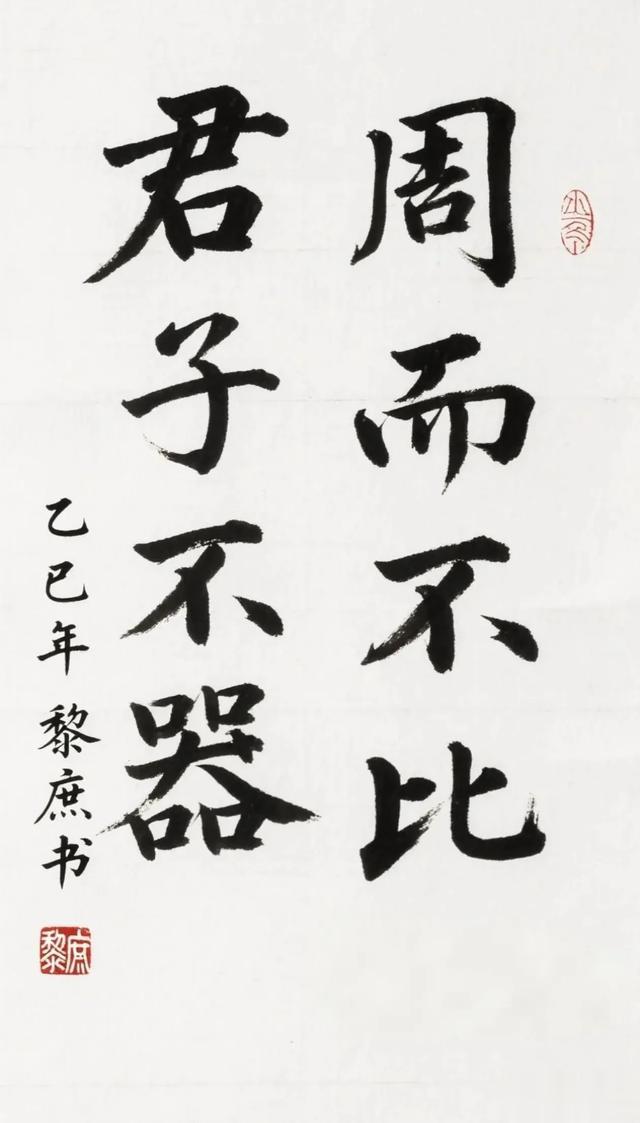 周而不比
君子不器
乙巳年 黎庶书
黎庶